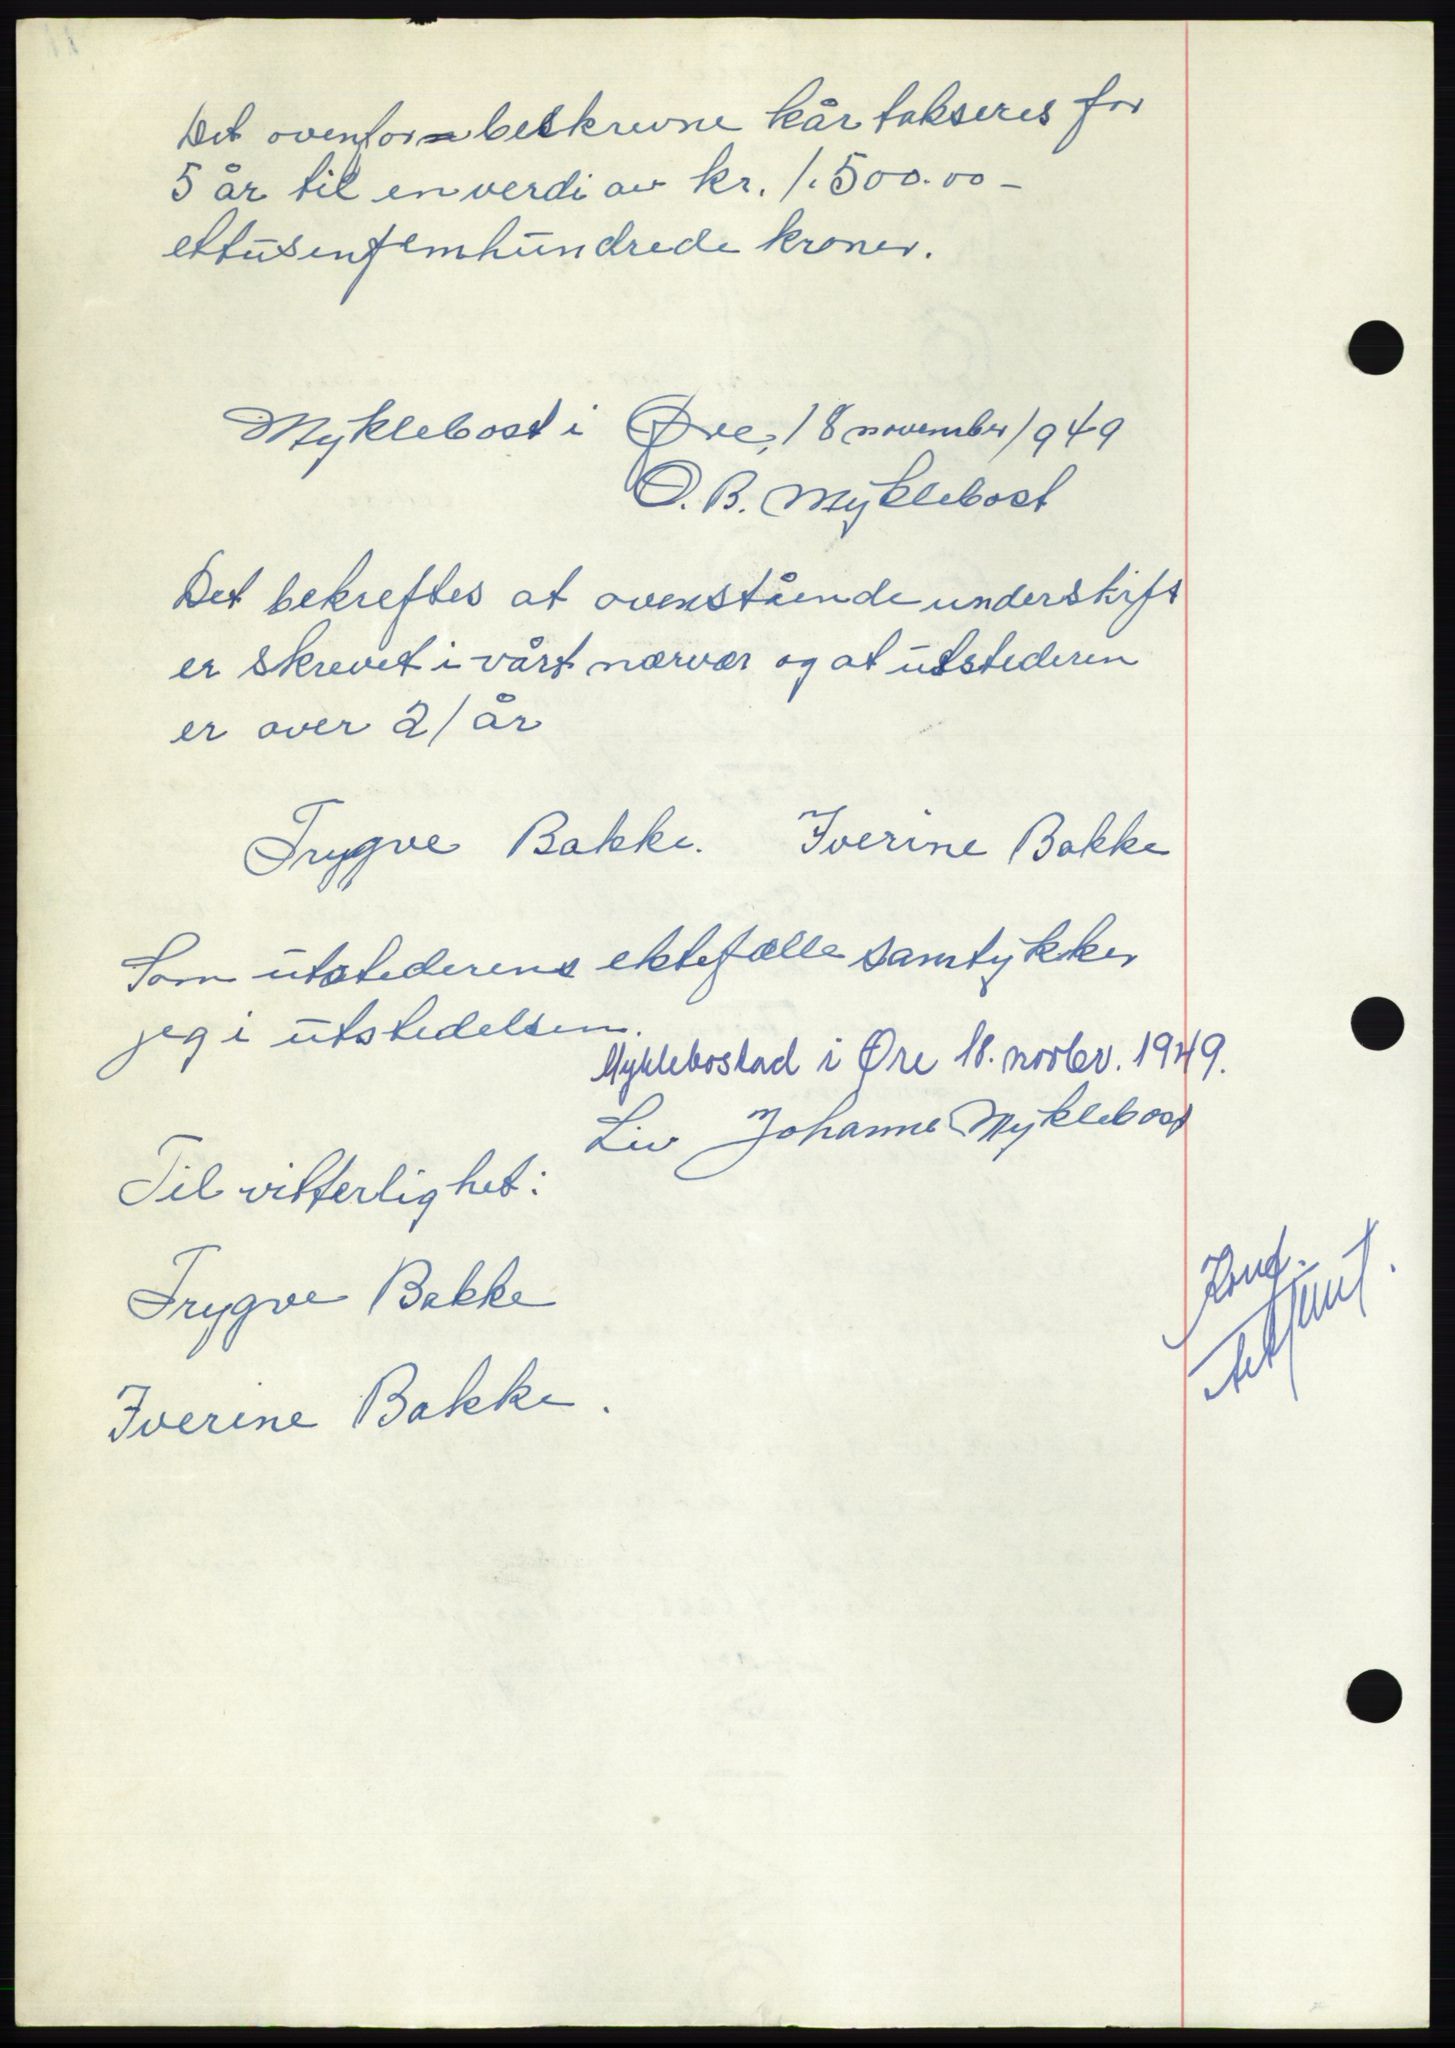 Det ovenfor beskrevne kår takseres for
5 år til en verdi av kr. 1.500.00 –
ettusenfemhundrede kroner.
Myklebost i Øre, 18 november 1949
O. B. Myklebost
Det bekreftes at ovenstående underskrift
er skrevet i vårt nærvær og at utstederen
er over 21 år
Trygve Bakke. Iverine Bakke
Som utstederens ektefælle samtykker
jeg i utstedelsen.
Myklebostad i Øre 18. novbr. 1949.
Liv Johanne Myklebost
Til vitterlighet:
Trygve Bakke
Iverine Bakke.
Konf.